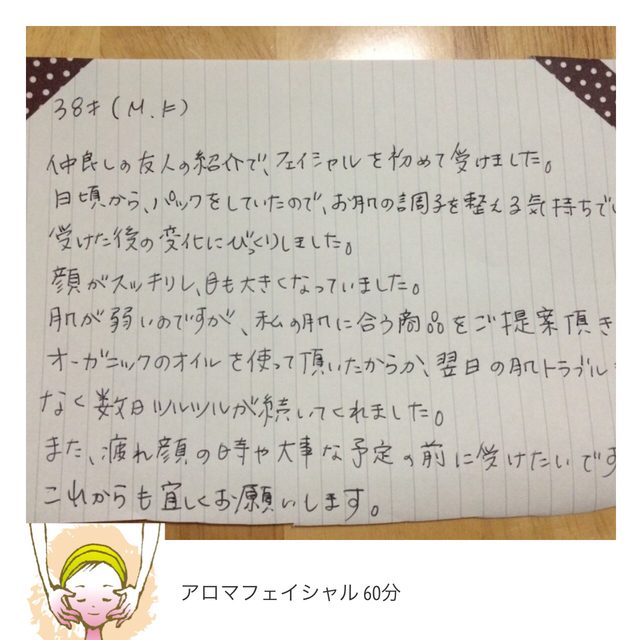 38才(M.F)
仲良しの友人の紹介で、フェイシャルを初めて受けました。
日頃から、パックをしていたので、お肌の調子を整える気持ちで
受けた後の変化にびっくりしました。
顔がスッキリし、目も大きくなっていました。
肌が弱いのですが、私の肌に合う商品をご提案頂き
オーガニックのオイルを使って頂いたからか、翌日の肌トラブル
なく数日ツルツルが続いてくれました。
また、疲れ顔の時や大事な予定の前に受けたいです
これからも宜しくお願いします。
アロマフェイシャル 60分